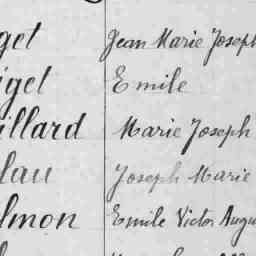 get Jean Marie Joseph
iget Emile
illard Marie Joseph
lau Joseph Marie
lmon Emile Victor Augu